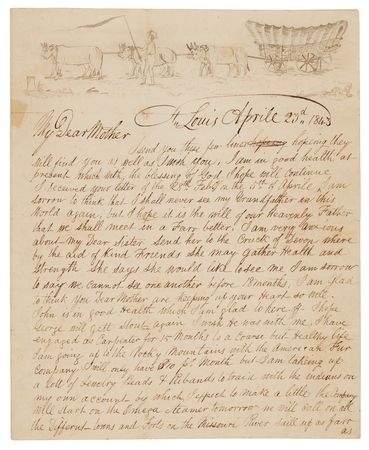 St Louis Aprile 27d 1843
My Dear Mother
Send you these few lines hopeing they
will find you as well as I wish you. I am in good health at
present which with the blessing of God I hope will continue
I received your letter of the 28th Feby on the 5th of Aprile I am
sorrow to think that I shall never see my Grandfather in this
World again, but I hope it is the will of our Heavenly Father
that we shall meet in a Farr better. I am very anxious
about My Dear sister. Send her to the of Devon where
by the aid of Kind Friends she may Gather Health and
Strength She says she would like to see me I am sorrow
to say we cannot see one another before 18 months. I am Glad
to think You Dear Mother are keeping up your Heart so well.
John is in good Health which I am glad to here of. I hope
George will gett Stout again I wish He was with me, I have
engaged as Carpenter for 15 Months to a Coarse but Healthy life
I am going up to the Rocky Mountains with the American Fur
Company I will only have pr Month but I am taking up
a lott of Jewelry Beads & Ribands to trade with the Indians on
my own account by which I expect to make a little the Company
will start on the Omega Steamer tomorrow we will call on all
the different towns and Forts on the Missouri River Sail up as farr
as